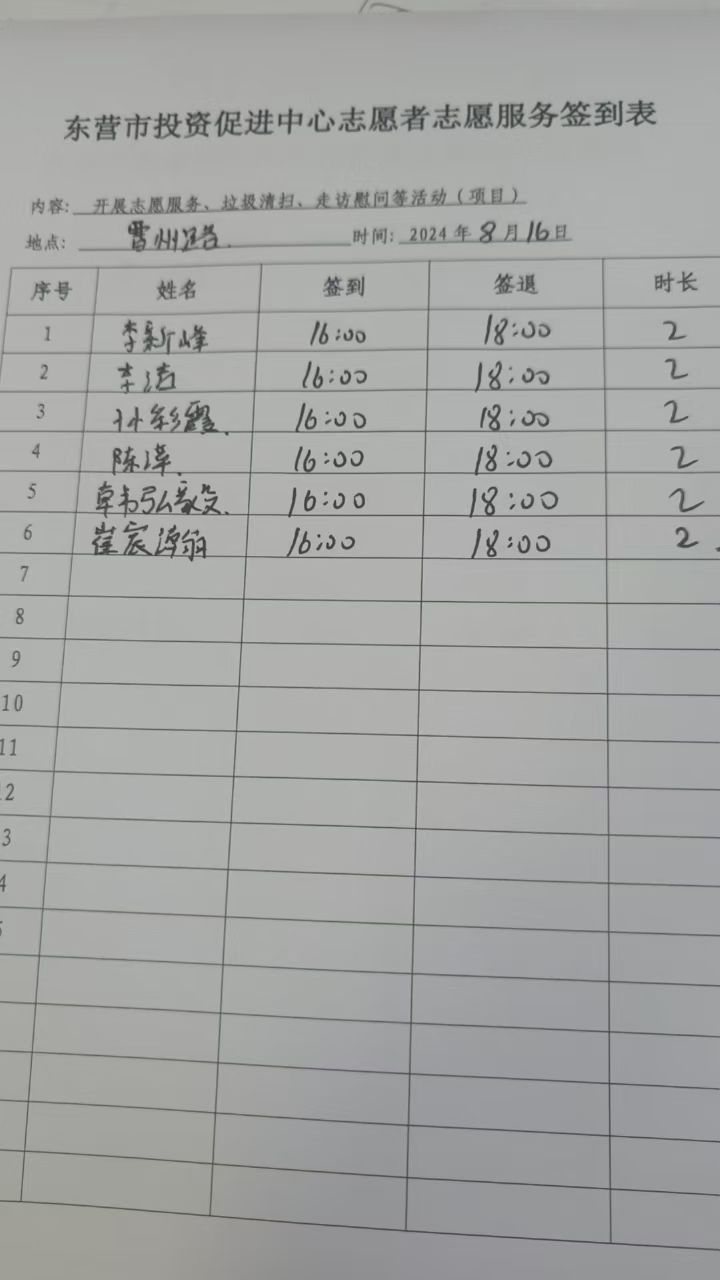 东营市投资促进中心志愿者志愿服务签到表
内容: 开展志愿服务、垃圾清扫、走访慰问等活动(项目)
地点: 雷州路 时间: 2024年8月16日
序号 姓名 签到 签退 时长
1 李新峰 16:00 18:00 2
2 李洁 16:00 18:00 2
3 孙彩霞 16:00 18:00 2
4 陈泽 16:00 18:00 2
5 16:00 18:00 2
6 16:00 18:00 2
7
8
9
10
11
2
3
4